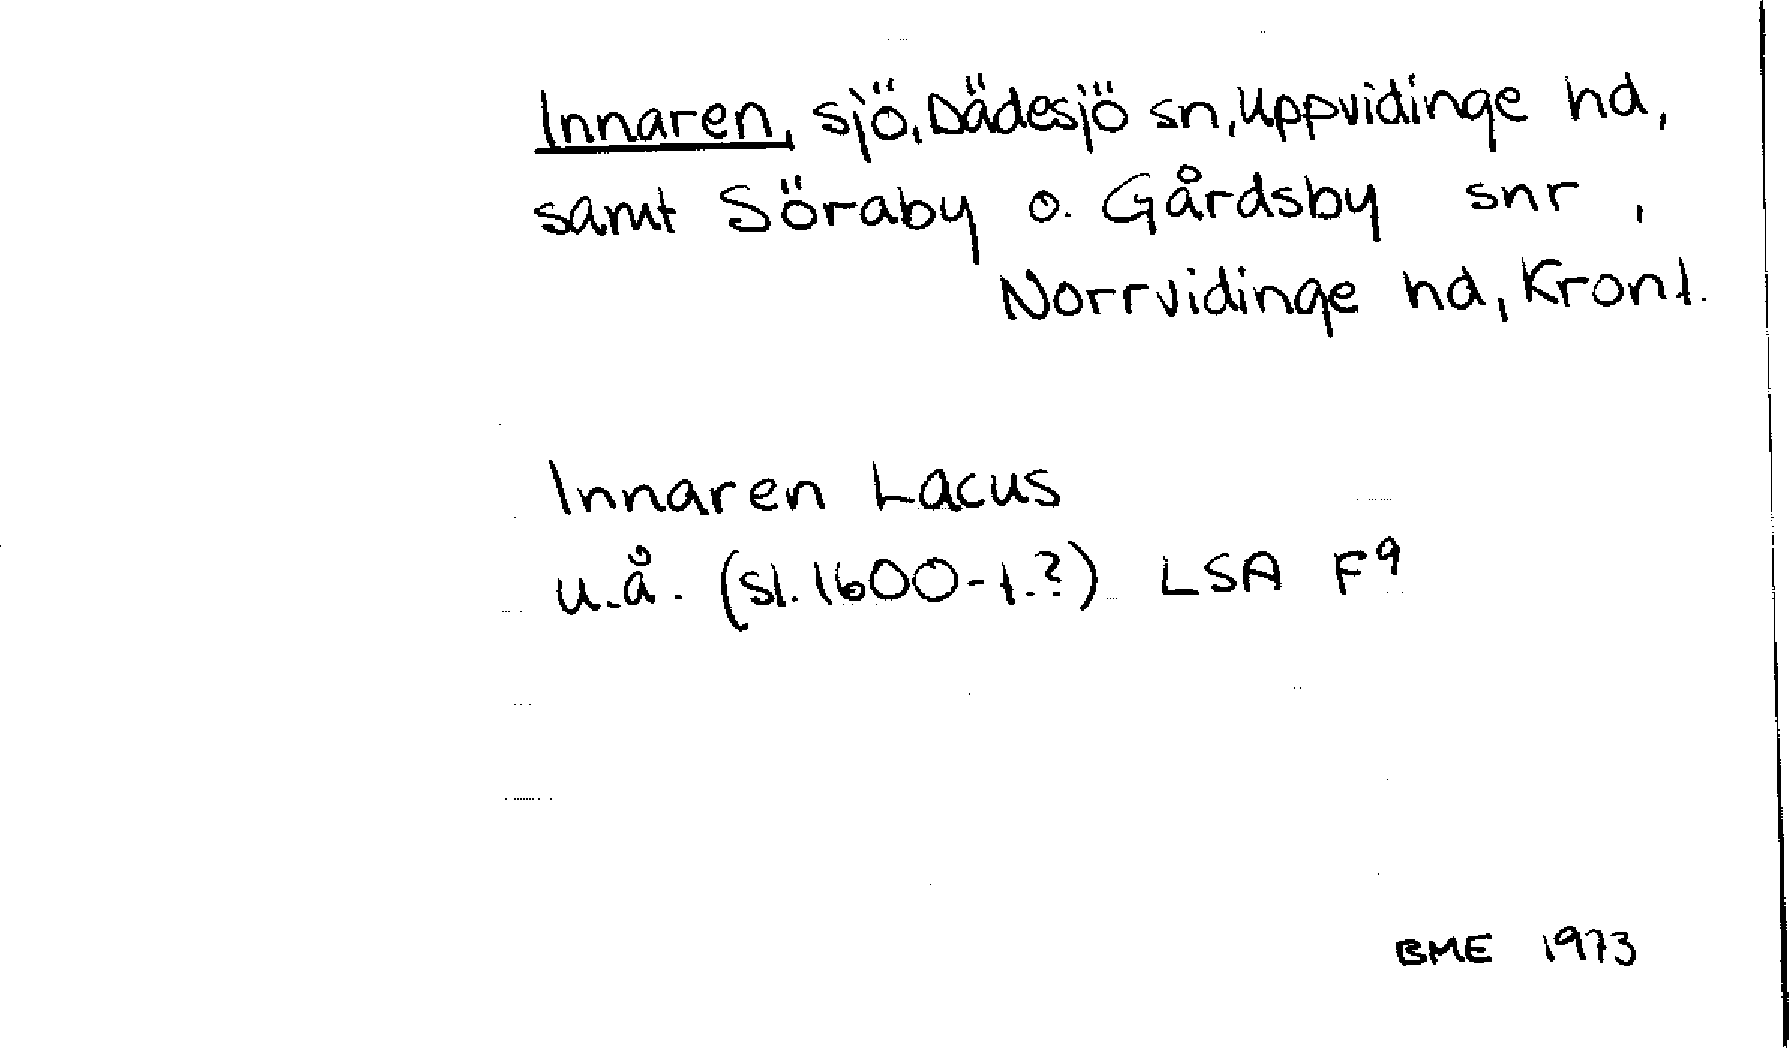 Innaren, sjö, Dädesjö sn, Uppvidinge hd,
samt Söraby o. Gårdsby snr,
Norrvidinge hd, Kron.l.
Innaren Lacus
u.å. (sl. 1600-t.?) LSA F9
BME 1973